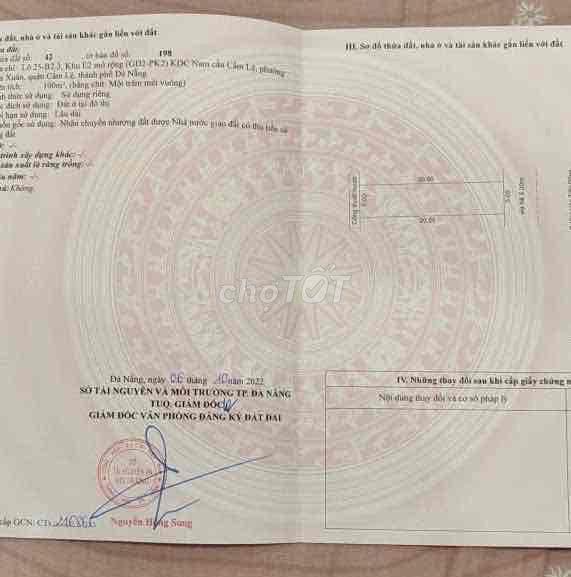 đất, nhà ở và tài sản khác gắn liền với đất
đất số: 42, tờ bản đồ số: 198
chỉ: Lô 25-B2.3, Khu E2 mở rộng (GĐ2-PK2) KDC Nam cầu Cẩm Lệ, phường
Xuân, quận Cẩm Lệ, thành phố Đà Nẵng
tích: 100m², (bằng chữ: Một trăm mét vuông)
thức sử dụng: Sử dụng riêng
đích sử dụng: Đất ở tại đô thị
hạn sử dụng: Lâu dài
gốc sử dụng: Nhận chuyển nhượng đất được Nhà nước giao đất có thu tiền sử
đất
-/-
trình xây dựng khác: -/-
sản xuất là rừng trồng: -/-
lâu năm: -/-
Không.
Đà Nẵng, ngày 06 tháng 10 năm 2022
SỞ TÀI NGUYÊN VÀ MÔI TRƯỜNG TP. ĐÀ NẴNG
TUQ. GIÁM ĐỐC
GIÁM ĐỐC VĂN PHÒNG ĐĂNG KÝ ĐẤT ĐAI
Nguyễn Hồng Sung
cấp GCN: CT
III. Sơ đồ thửa đất, nhà ở và tài sản khác gắn liền với đất
20.00
Cống thoát nước
5.00
5.00
20.00
IV. Những thay đổi sau khi cấp giấy chứng
Nội dung thay đổi và cơ sở pháp lý
choTỐT